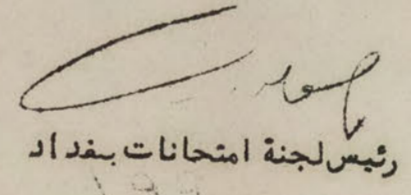 رئيس لجنة امتحانات بغداد